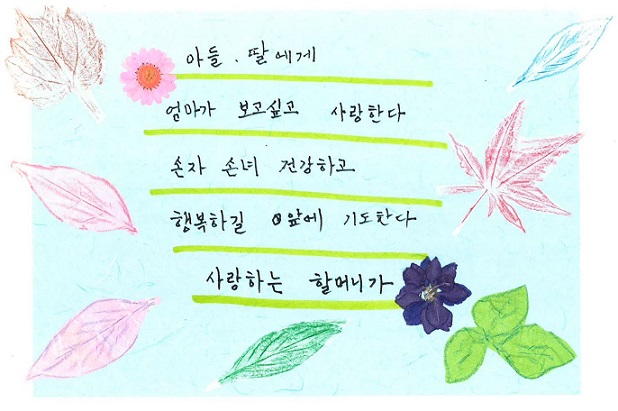 아들 . 딸에게
엄마가 보고싶고 사랑한다
손자 손녀 건강하고
행복하길 앞에 기도한다
사랑하는 할머니가